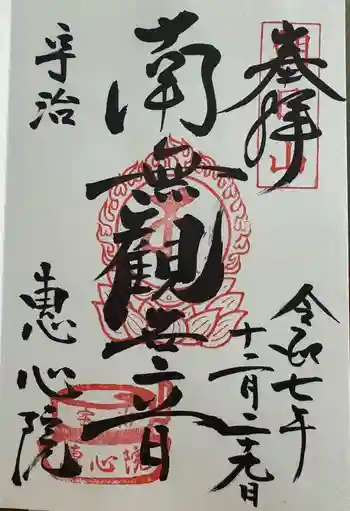 奉拝
令和七年
十二月二十九日
南無觀世音
宇治
恵心院
宇治
恵心院